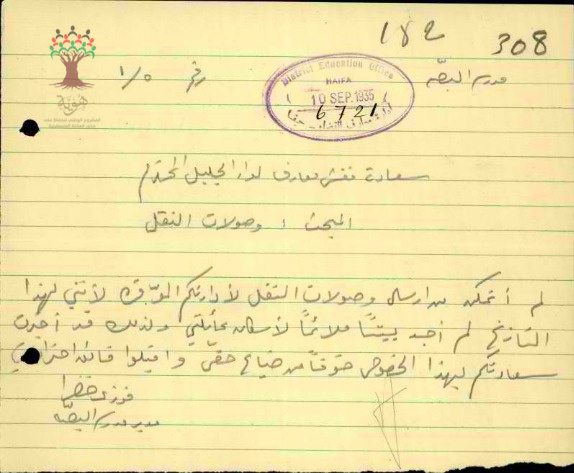 182
308
مدرسة البصّه
District Education Office
HAIFA
10 SEP. 1935
6721
رقم ١/٥
هوية
سعادة مفتش معارف لواء الجليل المحترم
المبحث : وصولات النقل
لم أتمكن من ارسال وصولات النقل لأدارتكم الموقره لأنني لهذا
التاريخ لم أجد بيتاً ملائماً لأسكان عائلتي ولذلك قد أخبرت
سعادتكم بهذا الخصوص خوفاً من ضياع حقي واقبلوا فائق احترامي
مدير مدرسة البصّه